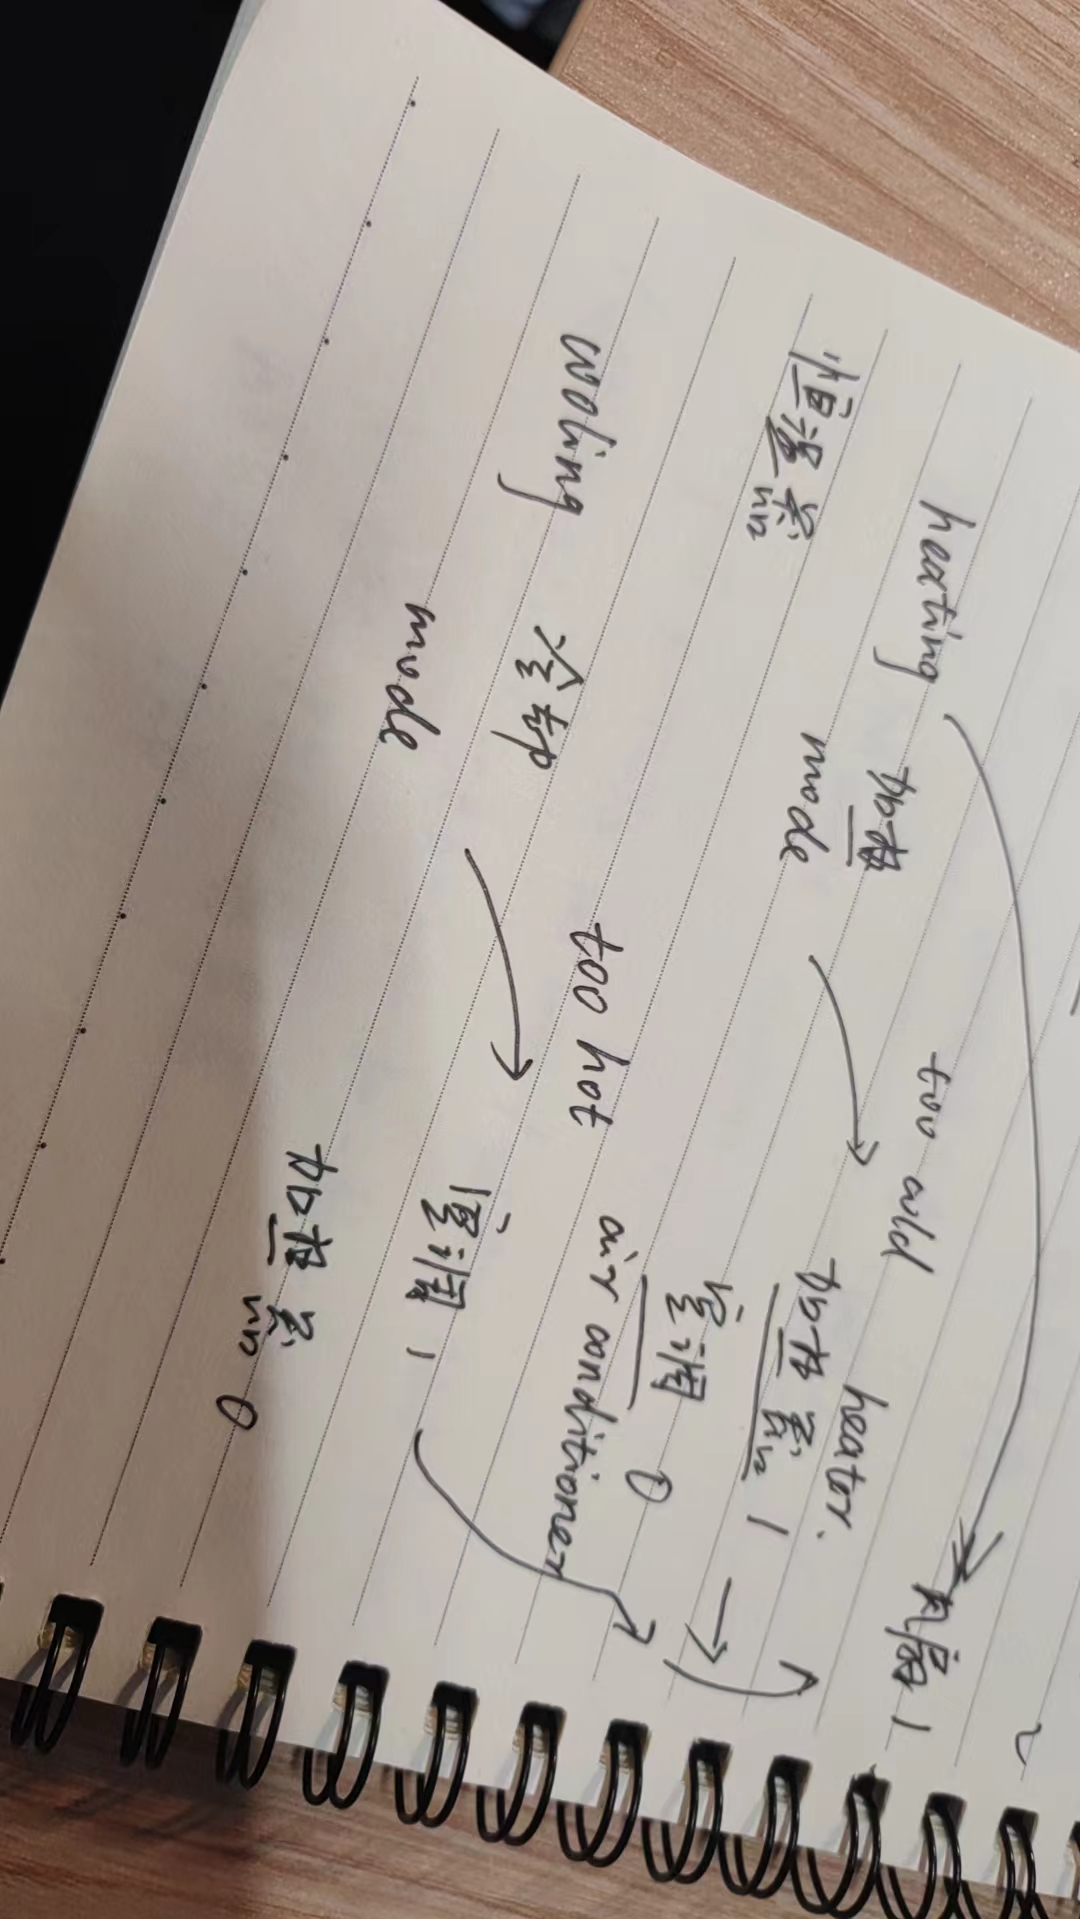 heating 加热 too cold
mode heater.
风扇 1
恒温器 加热器 1 →
空调 0
air conditioner
cooling 冷却 too hot
mode 空调 1
加热器 0